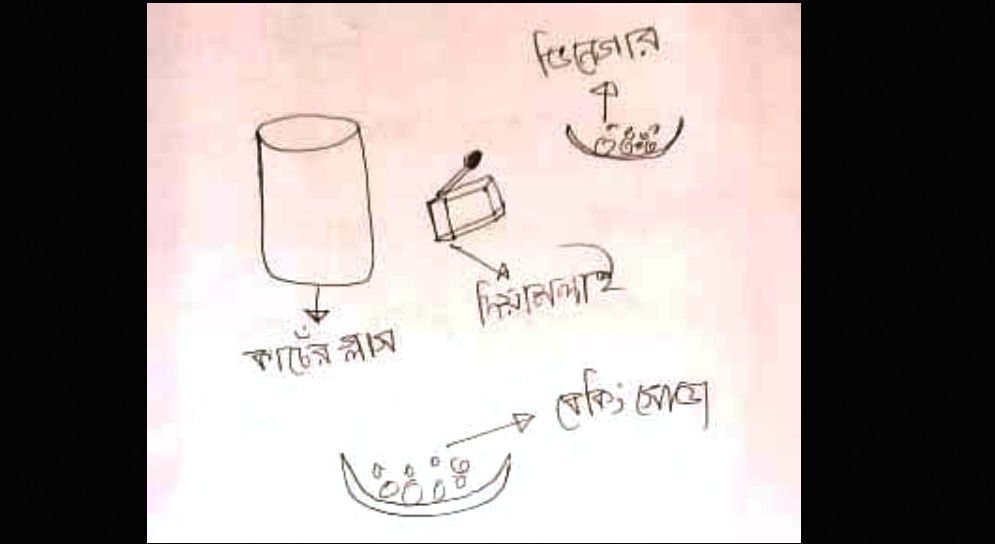 ভিনেগার
দিয়াশলাই
কাচেঁর গ্লাস
বেকিং সোডা